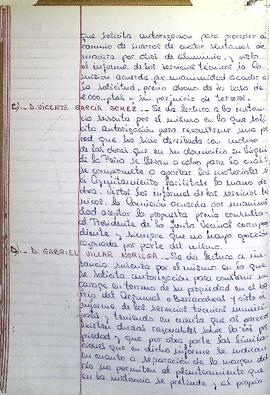 que solicita autorización para proceder al
cambio de marcos de cuatro ventanas de
madera por otros de aluminio, y visto
el informe de los servicios técnicos la Co-
misión acuerda por unanimidad acceder a
la solicitud, previo abono de la tasa de
y sin perjuicio de terceros.
C).- D. VICENTE GARCIA GOMEZ.- Se da lectura a instancia
suscrita por el mismo en la que soli-
cita autorización para reconstruir una pa-
red que ha sido derribada con motivo
de las obras que en su domicilio en Virgen
de la Peña se llevan a cabo para lo cual
se compromete a aportar los materiales si
el Ayuntamiento facilitase la mano de
obra. Vistos los informes de los servicios téc-
nicos, la Comisión acuerda por unanimi-
dad aceptar la propuesta previa consulta
al Presidente de la Junta Vecinal correspon-
diente y siempre que no haya oposición
por parte del mismo.
D).- D. GABRIEL VILLAR NORIEGA.- Se da lectura a ins-
tancia suscrita por el mismo en la que
se solicita autorización para construir un
garaje en terreno de su propiedad en el ba-
rrio del y visto el
informe de los servicios técnicos munici-
pales y teniendo en cuenta que al parecer
existen dudas razonables sobre la pro-
piedad y que por otra parte las limita-
ciones que en dicho informe se indican
en cuanto a separación de la margen del
río no permiten el planteamiento que
en la instancia se pretende, y al propio